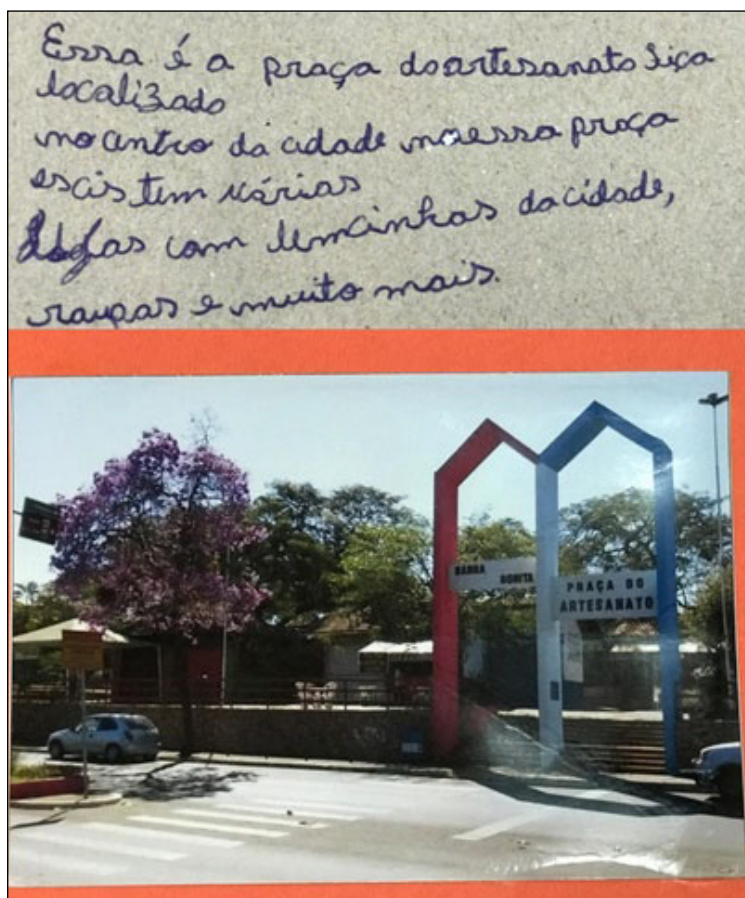 Essa é a praça do artesanato fica
localizado
no centro da cidade na essa praça
escistem várias
lojas com lemcinhas da cidade,
roupas e muito mais.
BARRA
BONITA
PRAÇA DO
ARTESANATO